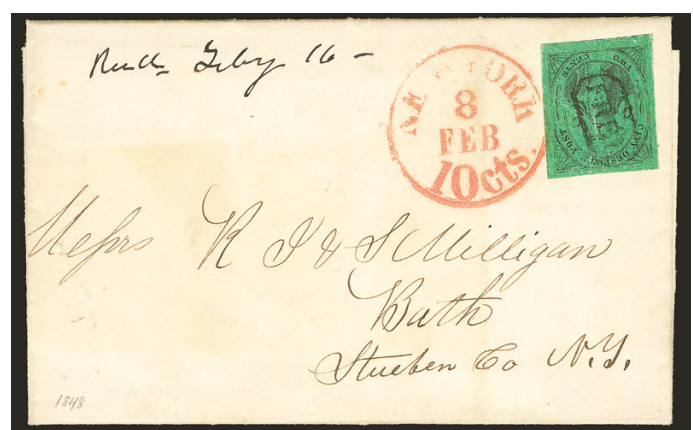 Recd. Feby 16 -
NEW YORK
8
FEB
10cts.
TWO CENTS
CITY DESPATCH POST
Messrs R J & S Milligan
Bath
Steuben Co N.Y.
1848